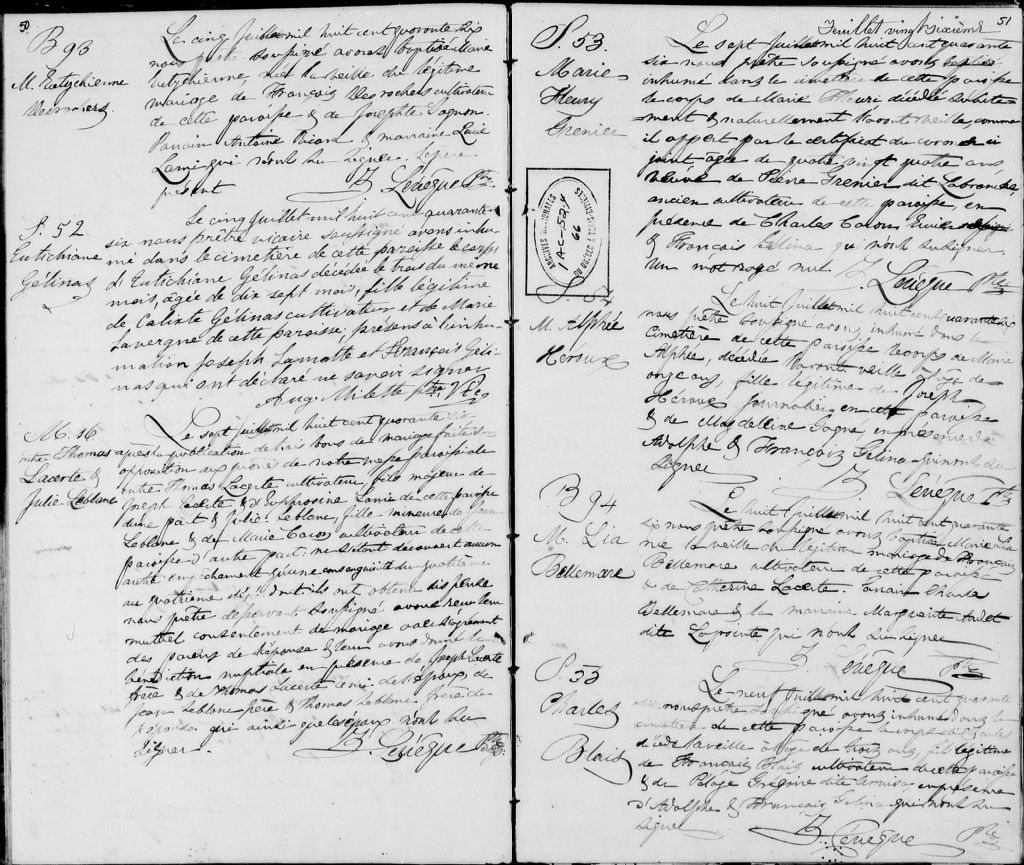 50
B 93
M. Eutychienne
Desrochers
Le cinq Juillet mil huit cent quarante six
nous prêtre soussigné avons baptisé Marie
Eutychienne née la veille du légitime
mariage de François Desrochers cultivateur
de cette paroisse & de Josephte Gagnon.
Parrain Antoine Ricard & marraine Lucie
Lamy qui n'ont su signer. Le père
présent
Z. Lévêque Ptre
S. 52
Eutichiane
Gélinas
Le cinq Juillet mil huit cent quarante
six nous prêtre vicaire soussigné avons inhu-
mé dans le cimetière de cette paroisse le corps
d'Eutichiane Gélinas décédée le trois du même
mois, agée de dix sept mois, fille légitime
de Calixte Gélinas cultivateur et de Marie
Lavergne de cette paroisse, présens à l'inhu-
mation Joseph Lamotte et François Géli-
nas qui ont déclaré ne savoir signer
Aug. Milette ptre Vic
M. 16.
entre Thomas
Lacerte &
Julie Leblanc
Le sept Juillet mil huit cent quarante six
après la publication de trois bans de mariage faite sans
opposition aux prônes de notre messe paroissiale
entre Thomas Lacerte cultivateur, fils majeur de
Joseph Lacerte & d'Euphrosine Lamie de cette paroisse
d'une part & Julie Leblanc, fille mineure de Jean
Leblanc & de Marie Caron cultivateur de cette
paroisse d'autre part; ne s'étant découvert aucun
autre empêchement qu'une consanguinité du quatrième
au quatrième dégré dont ils ont obtenu dispense
nous prêtre desservant soussigné avons reçu leur
mutuel consentement de mariage avec l'agrément
des parens de l'épouse & leur avons donné la
bénédiction nuptiale en présence de Joseph Lacerte
frère & de Thomas Lacerte ami de l'époux, de
Jean Leblanc père & Thomas Leblanc frère de
l'épouse qui ainsi que les époux n'ont su
signer.
Z. Lévêque Ptre
51
Feuillet vingt sixième
S. 53.
Marie
Fleury
Grenier
Le sept Juillet mil huit cent quarante
six nous prêtre soussigné avons
inhumé dans le cimetière de cette paroisse
le corps de Marie Fleuri décédée subite-
ment & naturellement l'avant veille, comme
il appert par le certificat du coroner ci
joint, agée de quatre vingt quatre ans
veuve de Pierre Grenier dit
ancien cultivateur de cette paroisse, en
présence de Charles Caron
& François Gélina qui n'ont su signer
Un mot rayé nul Z. Lévêque Ptre
ARCHIVES NATIONALES
DU QUÉBEC
1 AC-S2,4
66
S.
M. Alphée
Héroux
Le huit Juillet mil huit cent quarante six
nous prêtre soussigné avons inhumé dans le
cimetière de cette paroisse le corps de Marie
Alphée, décédée l'avant veille à l'âge de
onze ans, fille légitime de Joseph
Héroux journalier en cette paroisse
& de Magdeleine Gagné en présence de
Adolphe & François Gélina qui n'ont su
signer
Z. Lévêque Ptre
B 94
M. Lia
Bellemare
Le huit Juillet mil huit cent quarante
six nous prêtre soussigné avons baptisé Marie Lia
née la veille du légitime mariage de François
Bellemare cultivateur de cette paroisse
& de Catherine Lacerte. Parrain Charles
Bellemare & la marraine Marguerite
dite Lapointe qui n'ont su signer
Z. Lévêque Ptre
S. 53
Charles
Blais
Le neuf Juillet mil huit cent quarante
six nous prêtre soussigné avons inhumé dans le
cimetière de cette paroisse le corps de Charles
décédé la veille à l'âge de trois ans, fils légitime
de François Blais cultivateur de cette paroisse
& de Pélagie Grégoire dite en présence
d'Adolphe & François Gélina qui n'ont su
signer
Z. Lévêque Ptre